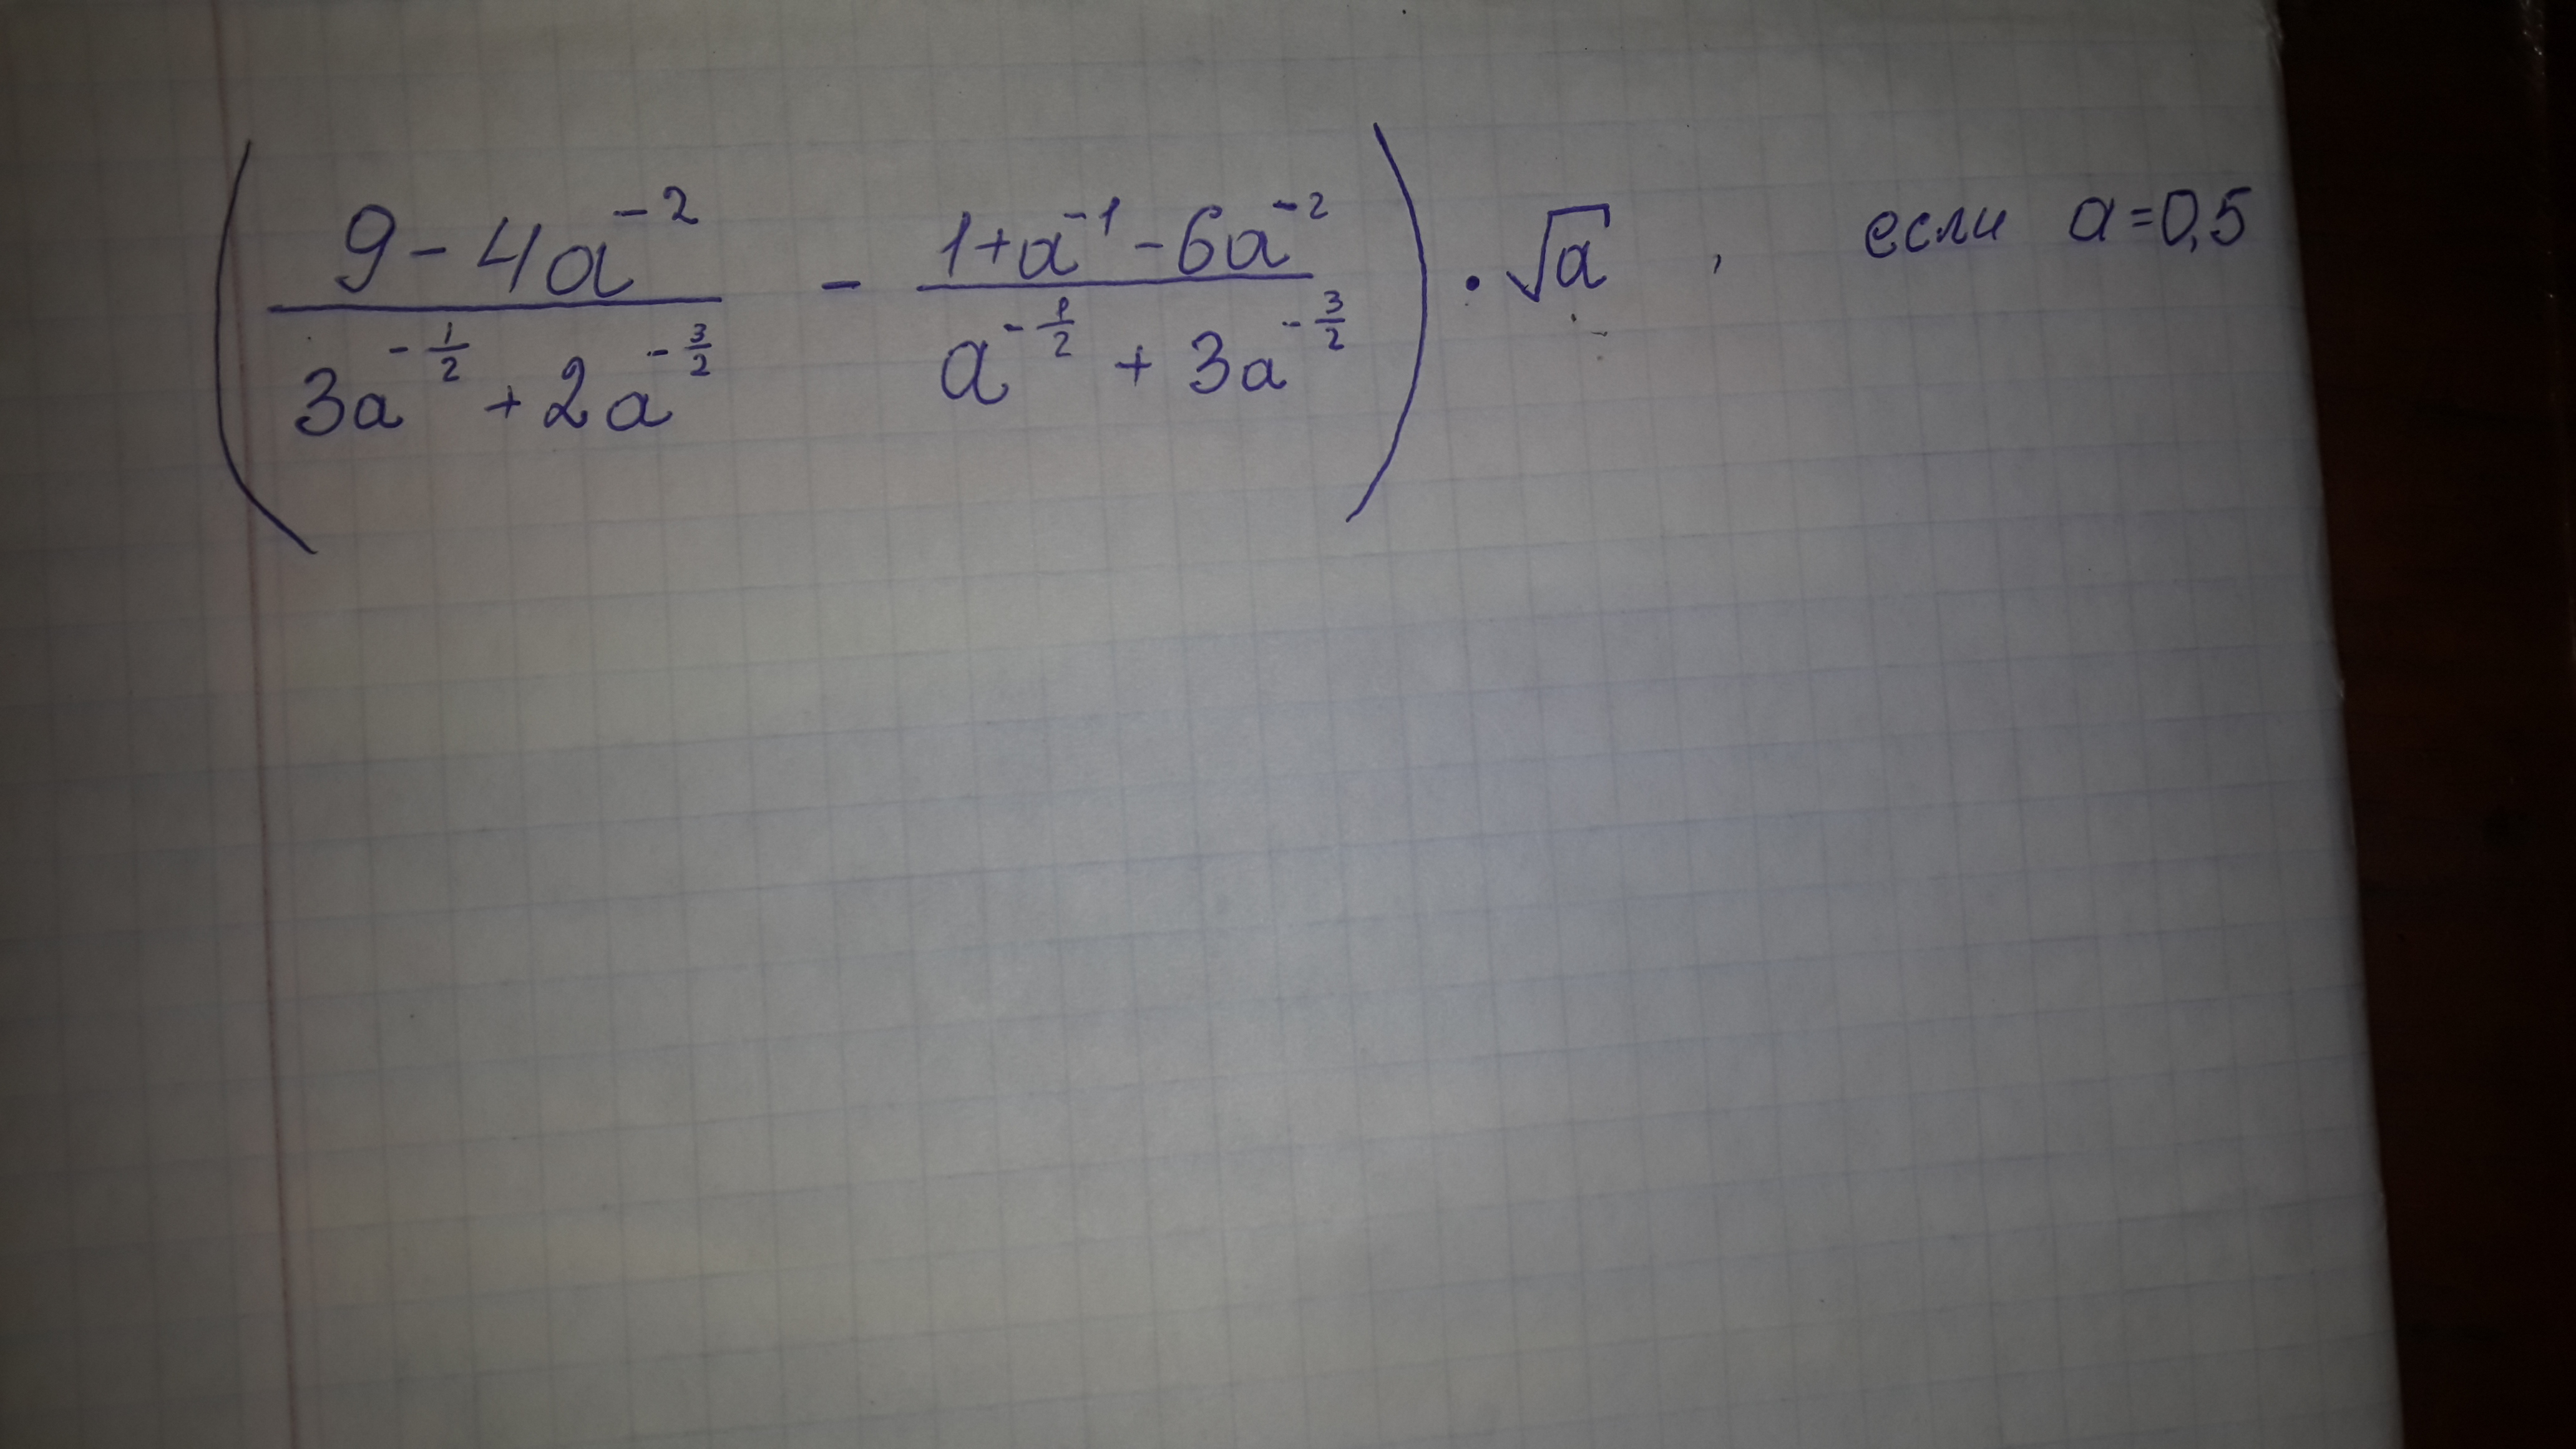 ( (9 - 4a^{-2}) / (3a^{-1/2} + 2a^{-3/2}) - (1 + a^{-1} - 6a^{-2}) / (a^{-1/2} + 3a^{-3/2}) ) · √a , если a = 0,5